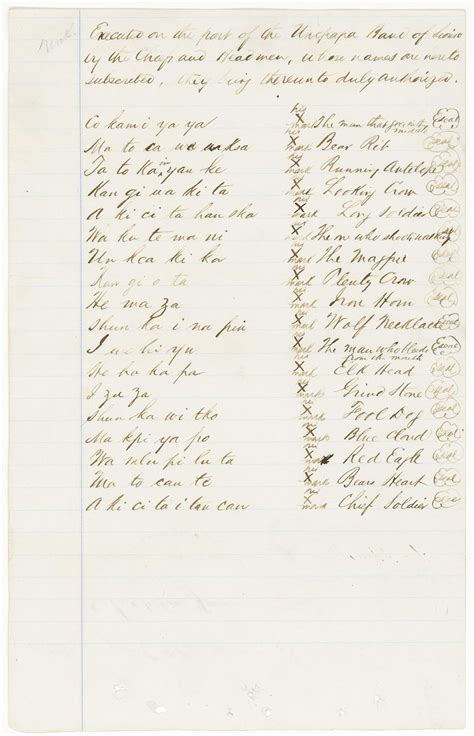 Executed on the part of the Uncpapa Band of Sioux
by the Chiefs and Headmen, whose names are hereto
subscribed, they being thereunto duly authorized.
Co kam i ya ya his X mark The man that goes in the middle seal
Ma to ca wa weksa his X mark Bear Rib seal
Ta to Ka in yan ke his X mark Running Antelope seal
Kan gi wa ki ta his X mark Looking Crow seal
A ki ci ta han ska his X mark Long Soldier seal
Wa ku te ma ni his X mark The one who shoots walking seal
Un kca ki ka his X mark The Magpie seal
Kan gi o ta his X mark Plenty Crow seal
He ma za his X mark Iron Horn seal
Shun ka i na pin his X mark Wolf Necklace seal
I we hi yu his X mark The man who bleeds from the mouth seal
He ha ka pa his X mark Elk Head seal
I zu za his X mark Grind Stone seal
Shun ka wi tko his X mark Fool Dog seal
Ma kpi ya po his X mark Blue Cloud seal
Wa mln pi lu ta his X mark Red Eagle seal
Ma to can te his X mark Bears Heart seal
A ki ci ta i tan can his X mark Chief Soldier seal